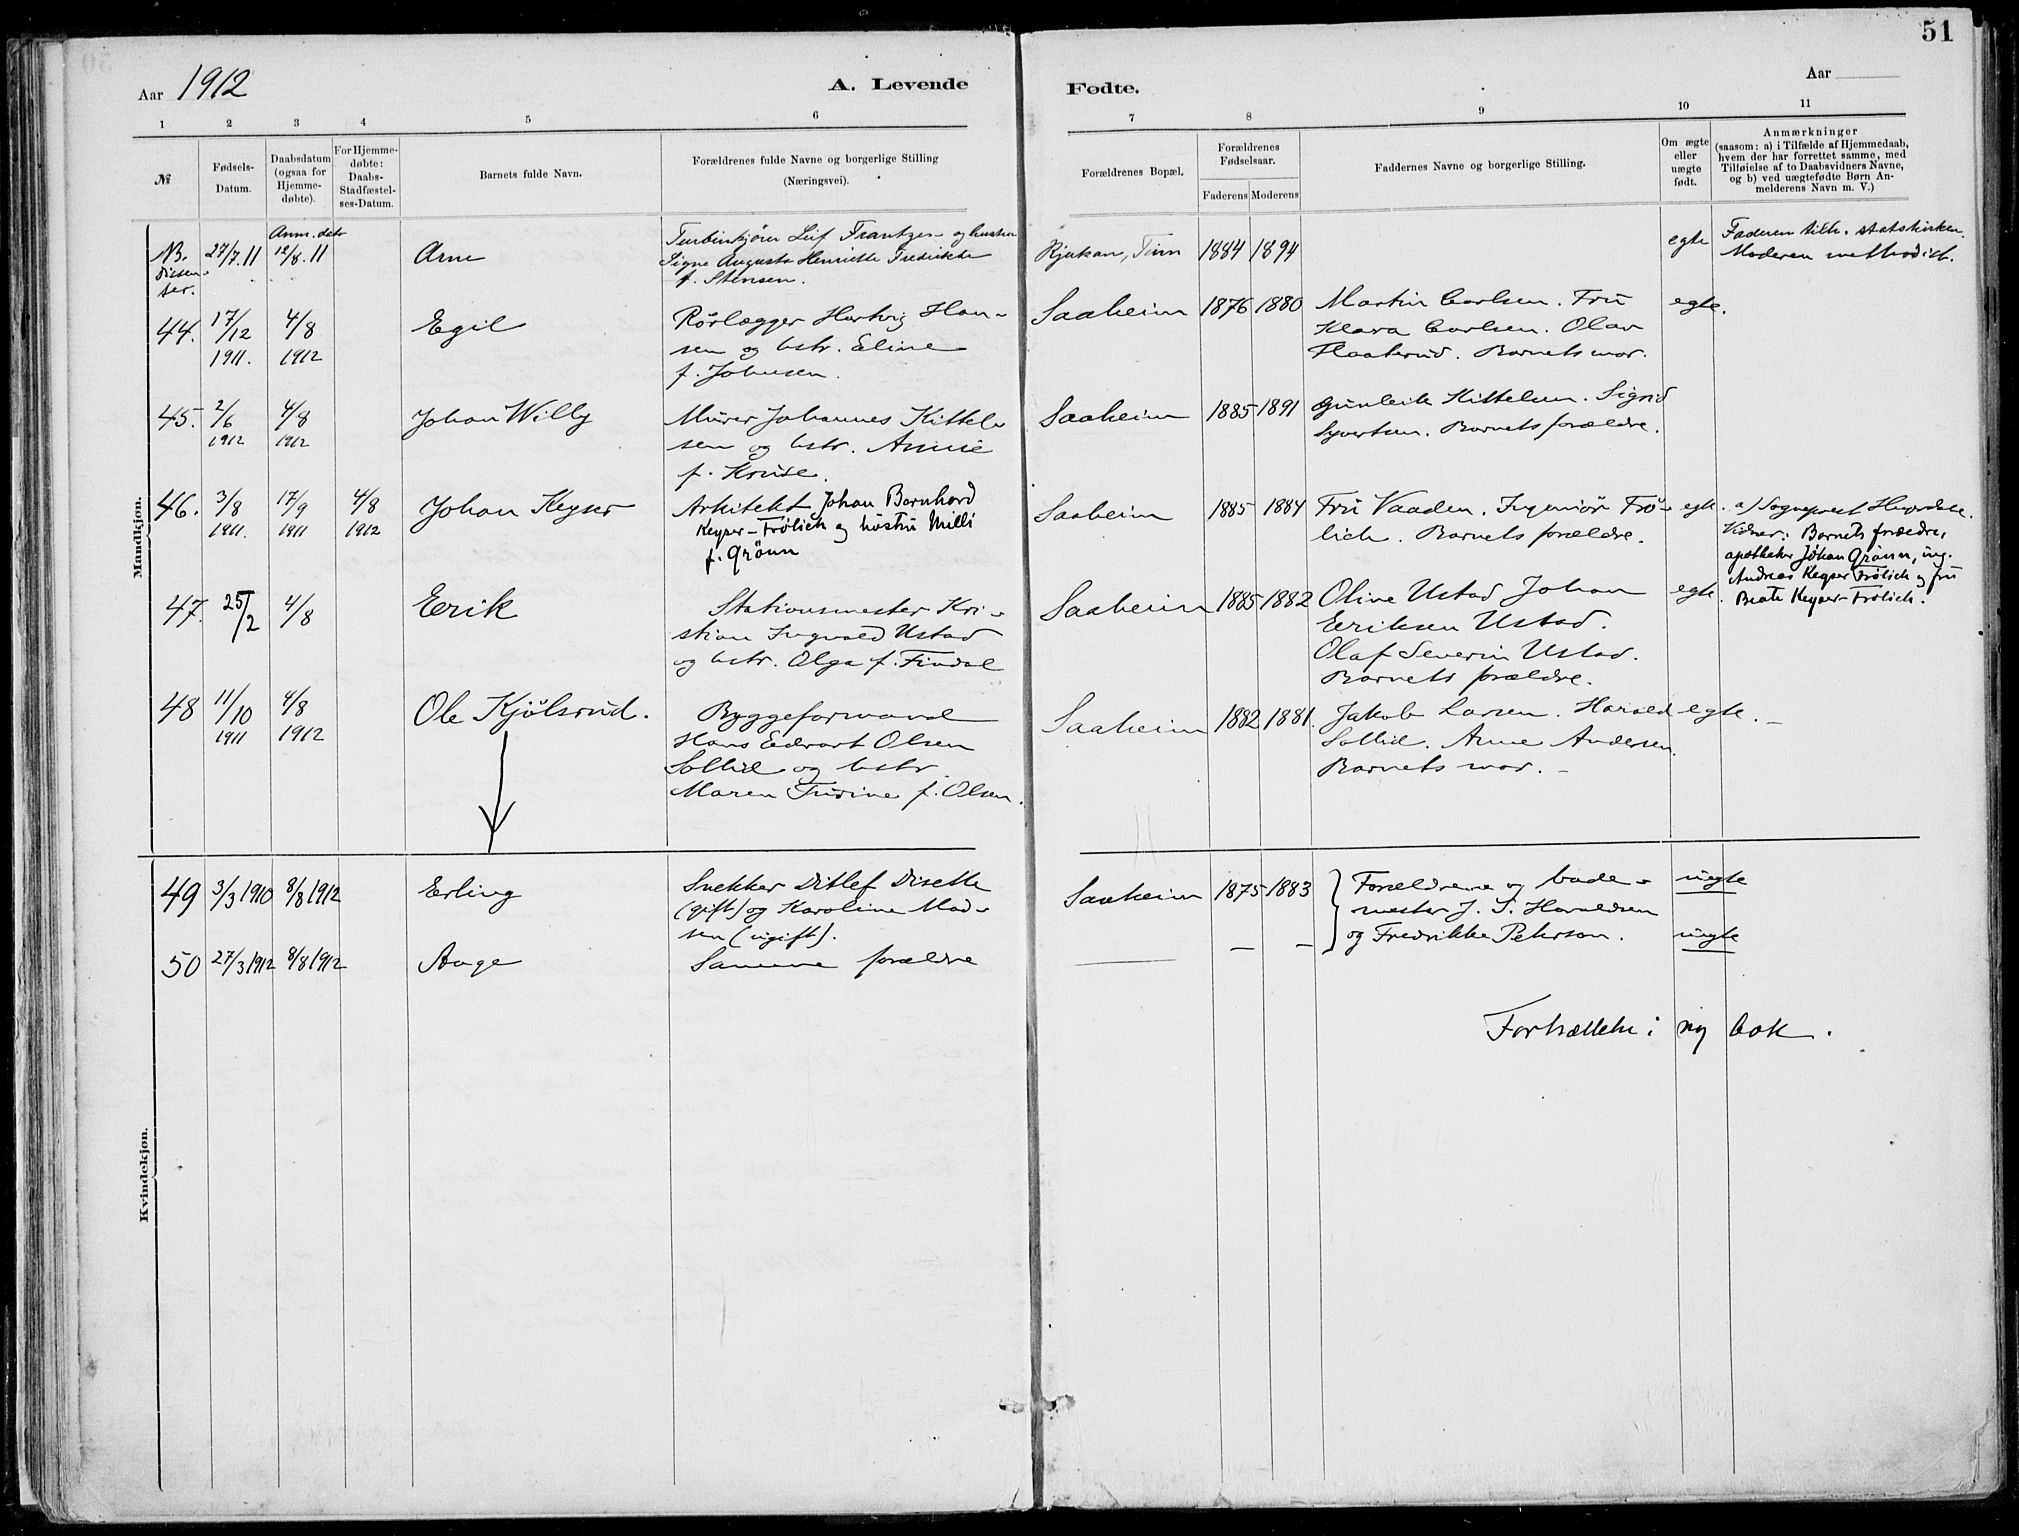 51
Aar 1912
A. Levende
Fødte.
Aar
1 2 3 4 5 6 7 8 9 10 11
№
Fødsels-
Datum.
Daabsdatum
(ogsaa for
Hjemme-
døbte).
For Hjemme-
døbte:
Daabs-
Stadfæstel-
ses-Datum.
Barnets fulde Navn.
Forældrenes fulde Navne og borgerlige Stilling
(Næringsvei).
Forældrenes Bopæl.
Forældrenes
Fødselsaar.
Faderens Moderens
Faddernes Navne og borgerlige Stilling.
Om ægte
eller
uægte
født.
Anmærkninger
(saasom: a) i Tilfælde af Hjemmedaab,
hvem der har forrettet samme, med
Tilføielse af to Daabsvidners Navne,
og b) ved uægtefødte Børn An-
melderens Navn m. V.)
Mandkjøn.
Anm. dato
NB. 27/7.11 12/8.11 Arne
Dissen-
ter.
Turbinkjører Leif Frantzen og hustru
Signe Augusta Henriette Fredrikke
f. Stensen.
Rjukan, Tinn 1884 1894
egte
Faderen tilh. statskirken.
Moderen methodist.
44. 17/12 4/8 Egil
1911. 1912
Rørlægger Hartvig Han-
sen og hstr. Eline
f. Johnsen.
Saaheim 1876 1880
Martin Carlsen. Fru
Klara Carlsen. Olav
Haaterud. Barnets mor.
egte.
45. 2/6 4/8 Johan Willy
1912 1912
Murer Johannes Kittel-
sen og hstr. Annie
f. Kruse.
Saaheim 1885 1891
Gunleik Kittelsen. Sigrid
Syvertsen. Barnets forældre.
46. 3/8 17/9 4/8 Johan Keyser
1911. 1911 1912
Arkitekt Johan Barnhard
Keyser-Frölich og hustru Milli
f. Grönn
Saaheim 1885 1884
Fru Vaaden. Ingeniør Frö-
lich. Barnets forældre.
egte.
a/ Sogneprest
Vidner: Barnets forældre,
apotheker Johan Grönn, ing.
Andreas Keyser Frölich og fru
Beate Keyser-Frölich.
47. 25/2 4/8 Eerik
Stationsmester Kri-
stian Ingvald Ustad
og hstr. Olga f. Findal
Saaheim 1885 1882
Oline Ustad Johan
Eeriksen Ustad.
Olaf Severin Ustad.
Barnets forældre.
egte.
48 11/10 4/8 Ole Kjölsrud.
1911 1912
Byggeformand
Hans Edvart Olsen
Sollid og hstr.
Maren Tudine f. Olsen.
Saaheim 1882 1881.
Jakob Larsen. Harald
Sollid. Anne Andersen.
Barnets mor. –
egte. –
Kvindekjøn.
49 3/3 1910 8/8 1912 Erling
Snekker Ditlef Disette
(gift) og Karoline Mad-
sen (ugift).
Saaheim 1875 1883
Forældrene og bade-
mester J. S. Haraldsen
og Fredrikke Peterson.
uegte
50 27/3 1912 8/8 1912 Aage
Samme forældre
— – –
uegte
Fortsættes i ny bok.